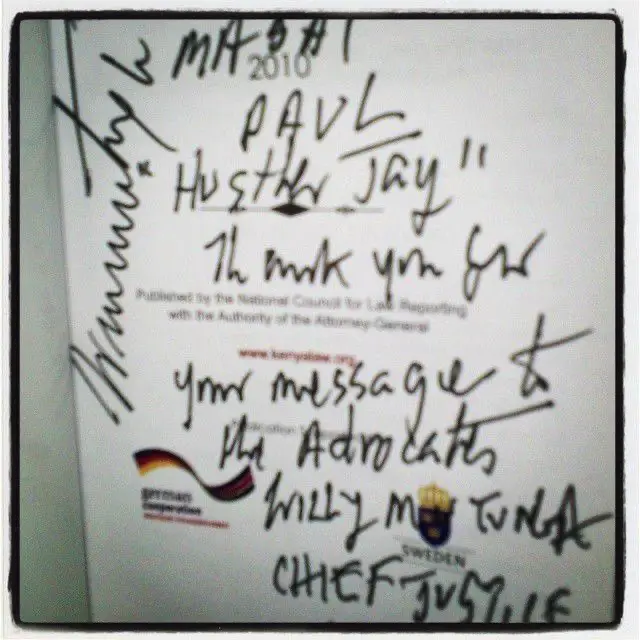 MASAI
2010
PAUL
HUSTLER JAY"
Thank you for
Published by the National Council for Law Reporting
with the Authority of the Attorney-General
www.kenyalaw.org
your message to
the Advocates
german
cooperation
WILLY MUTUNGA
SWEDEN
CHIEF JUSTICE